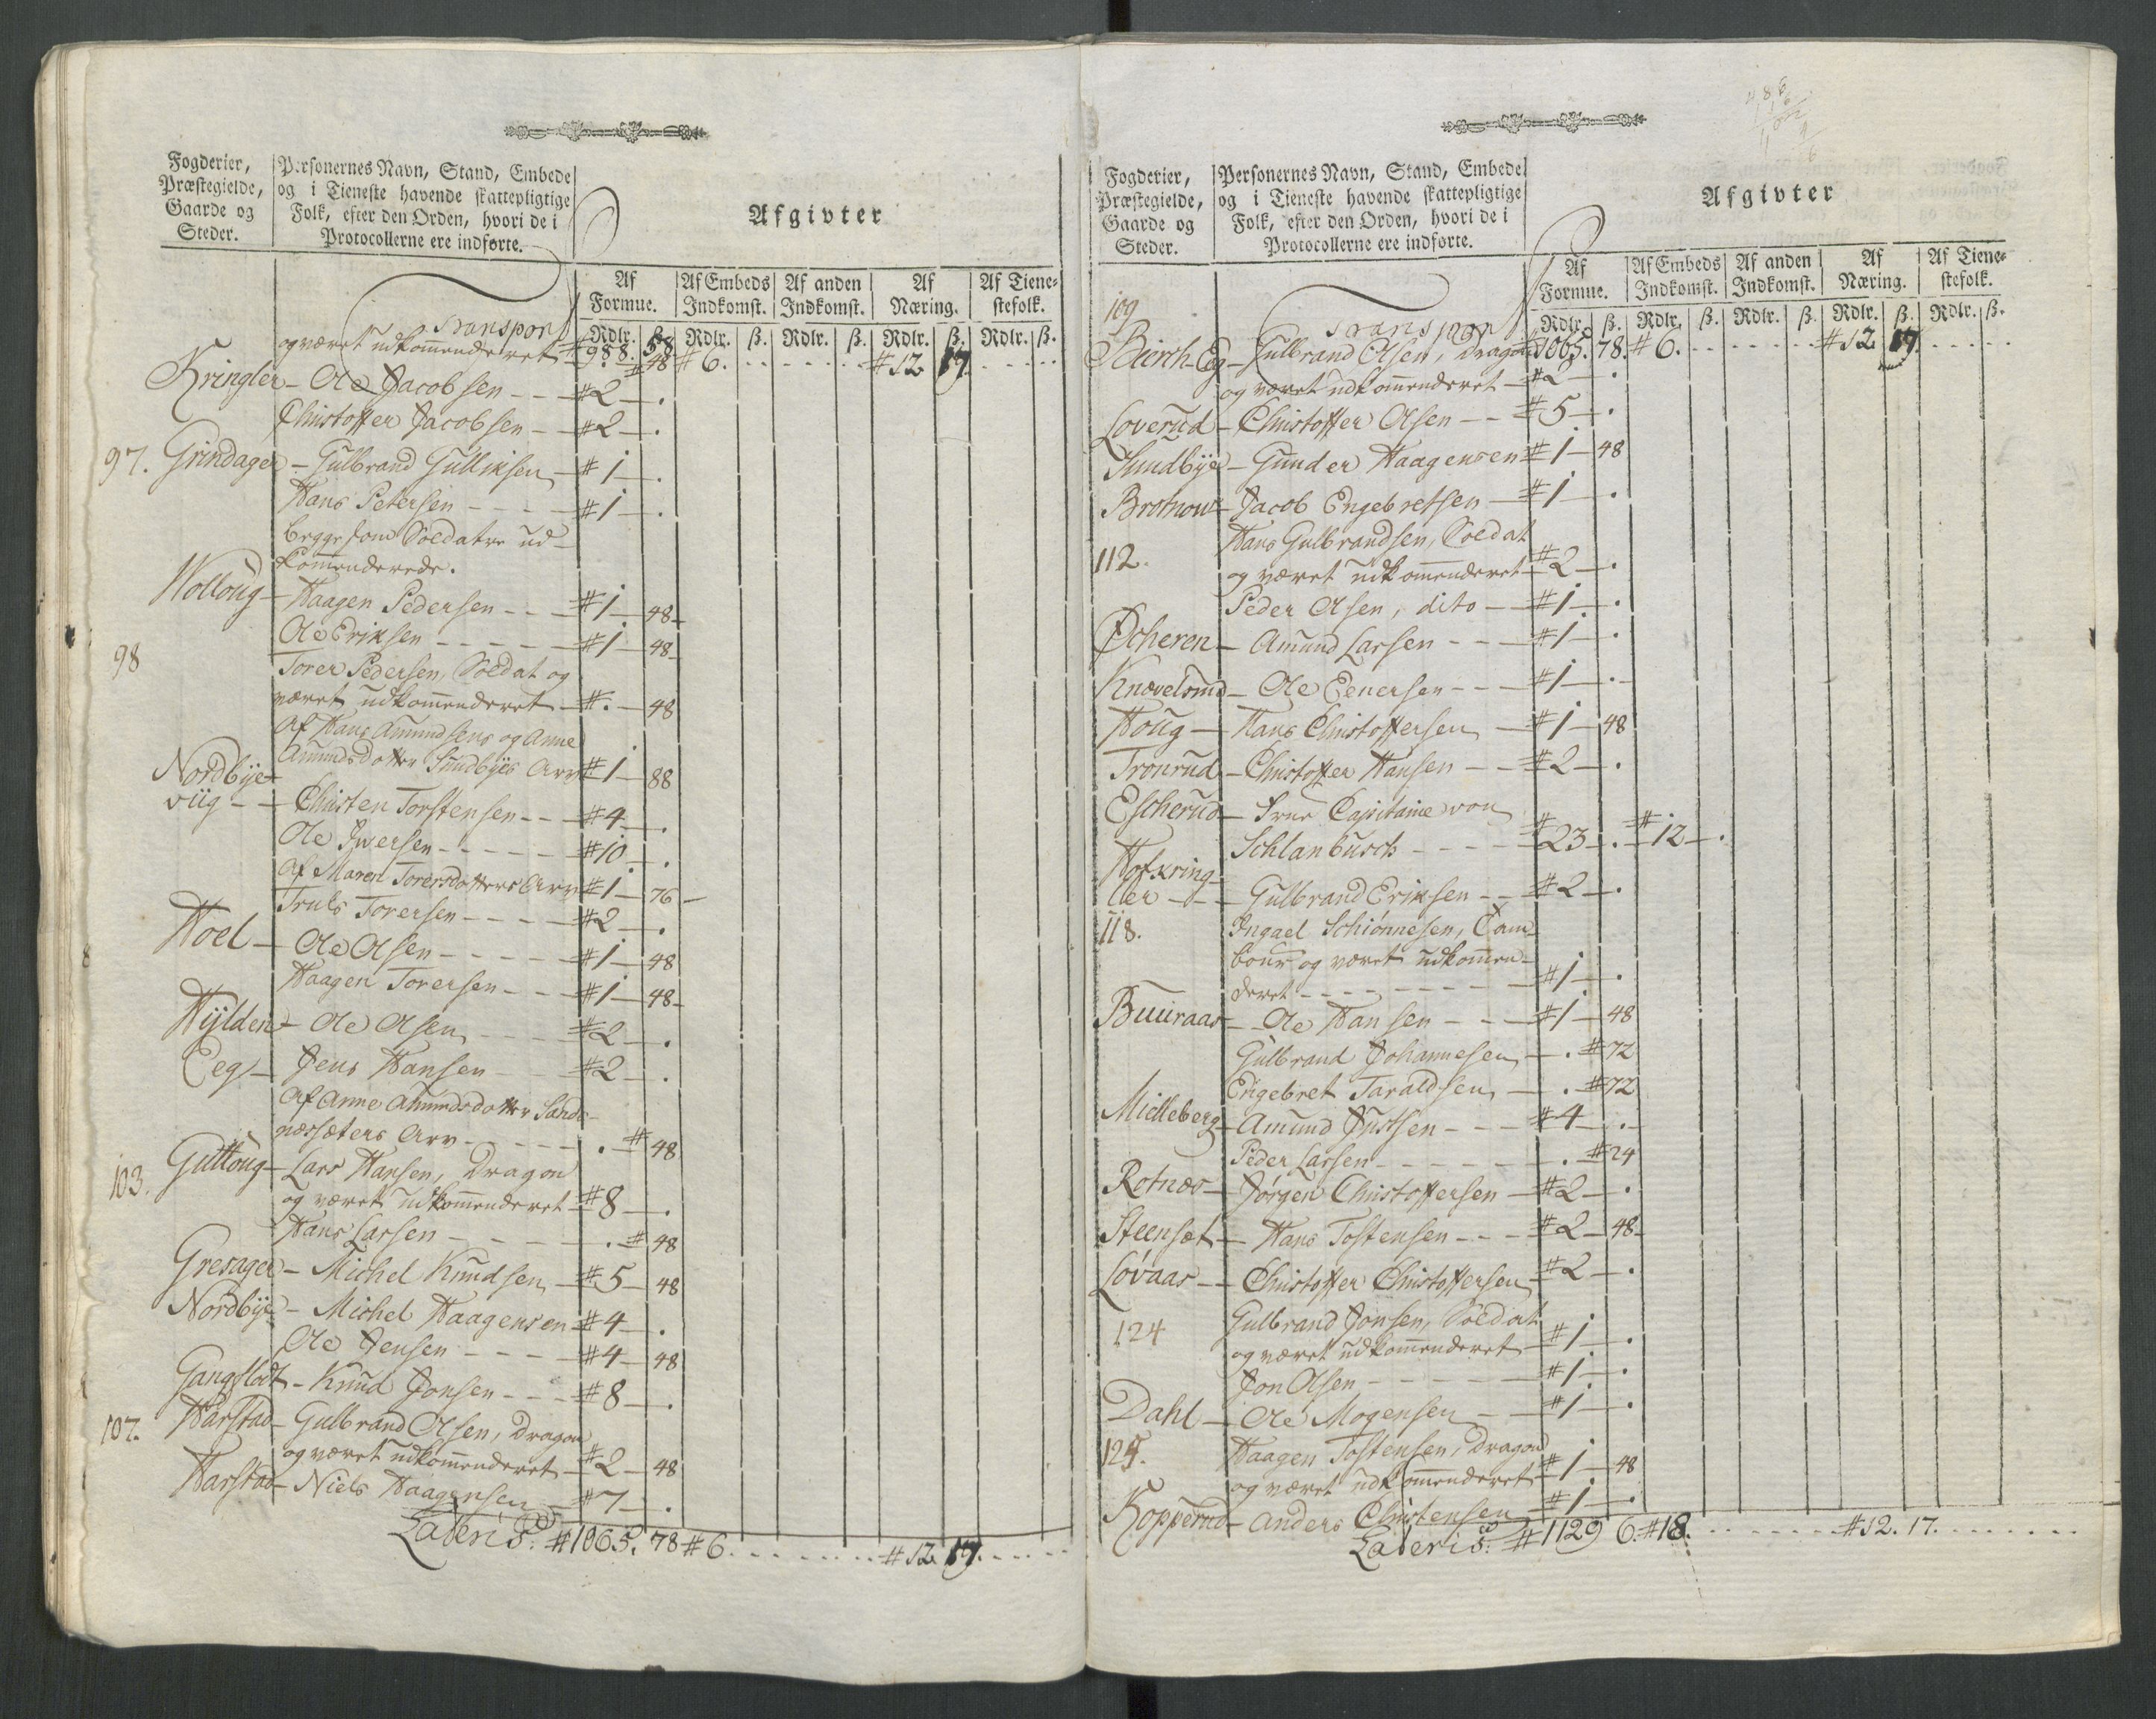 Fogderier,
Præstegielde,
Gaarde og
Steder.
Personernes Navn, Stand, Embede
og i Tieneste havende skattepligtige
Folk, efter den Orden, hvori de i
Protocollerne ere indførte.
Afgivter
Af Formue. Af Embeds Indkomst. Af anden Indkomst. Af Næring. Af Tienestefolk.
Rdlr. ß. Rdlr. ß. Rdlr. ß. Rdlr. ß. Rdlr. ß.
Transport 988. 58 #6. #12 17
og været udkom̄enderet # 48
Kringler - Ole Jacobsen - - #2 - .
Christoffer Jacobsen - #2 - .
97. Grindager - Gulbrand Gulliksen - #1 - .
Hans Petersen - - - - #1 - .
begge som Soldatre ud-
kom̄enderede.
Wolloug - Haagen Pedersen - - - #1 - 48
98 Ole Eriksen - - - - - #1 - 48
Torer Pedersen, Soldat og
været udkom̄enderet - # . - 48
Af Hans Amundsens og Anne
Amundsdotter Sundbyes Arv #1 - 88
Nordbye-
viig - - Christen Torstensen - - #4 - .
Ole Iwersen - - - - - #10 - .
Af Maren Torersdotters Arv #1 - 76
Truls Torersen - - - - #2 - .
Hoel - Ole Olsen - - - - - #1 - 48
Haagen Torersen - - - #1 - 48
Hylden - Ole Olsen - - - - #2 - .
Eeg - Jens Hansen - - - #2 - .
Af Anne Amundsdotter Sande-
næssæters Arv - - - - - . # 48
103. Guttoug - Lars Hansen, Dragon
og været udkom̄enderet #8 - .
Hans Larsen - - - - . # 48
Gresager - Michel Knudsen - #5 - 48
Nordbye - Michel Haagensen #4 - .
Ole Jensen - - - - #4 - 48
Gangflodt - Knud Jonsen - - - #8 - .
107. Harstad - Gulbrand Olsen, Dragon
og været udkom̄enderet - #2 - 48
Harstad - Niels Haagensen - #7 - .
Lateris. #1065. 78 #6. #12. 17.
Fogderier,
Præstegielde,
Gaarde og
Steder.
Personernes Navn, Stand, Embede
og i Tieneste havende skattepligtige
Folk, efter den Orden, hvori de i
Protocollerne ere indførte.
Afgivter
Af Formue. Af Embeds Indkomst. Af anden Indkomst. Af Næring. Af Tienestefolk.
Rdlr. ß. Rdlr. ß. Rdlr. ß. Rdlr. ß. Rdlr. ß.
109 Transport #1065. 78. #6. #12 17
Bierch-Eeg - Gulbrand Olsen, Dragon
og været udkom̄enderet - #2 - .
Loverud - Christoffer Olsen - - #5 - .
Sundbye - Gunder Haagensen #1 - 48
Brotnow - Jacob Engebretsen - #1 - .
Hans Gulbrandsen, Soldat
112. og været udkom̄enderet #2 - .
Peder Olsen, dito - #1 - .
Øcheren - Amund Larsen - - - #1 - .
Knævelsrud - Ole Eenersen - - - #1 - .
Houg - Hans Christoffersen - #1 - 48
Tronrud - Christoffer Hansen - - #2 - .
Escherud - Frue Capitaine von
Schlanbusch - - - - #23 - . #12 - .
Hofkring-
ler - - - Gulbrand Eriksen - - #2 - .
118. Ingael Schiønnesen, Tam-
bour og været udkom̄en-
deret - - - - - - - - #1 - .
Buuraas - Ole Hansen - - - #1 - 48
Gulbrand Johannesen - . #72
Engebret Taraldsen - . #72
Midleberg - Amund Justsen - - - #4 - .
Peder Larsen - - - - - . #24
Rotnæs - Jørgen Christoffersen - #2 - .
Steenset - Hans Tostensen - - - #2 - 48
Løvaas - Christoffer Christoffersen #2 - .
Gulbrand Jonsen, Soldat
124 og været udkom̄enderet #1 - .
Jon Olsen - - - - - #1 - .
Dahl - Ole Mogensen - #1 - .
125. Haagen Tostensen, Dragon
og været udkom̄enderet #1 - 48
Kopperud - Anders Christensen #1 - .
Lateris. #1129 6. #18. #12. 17.